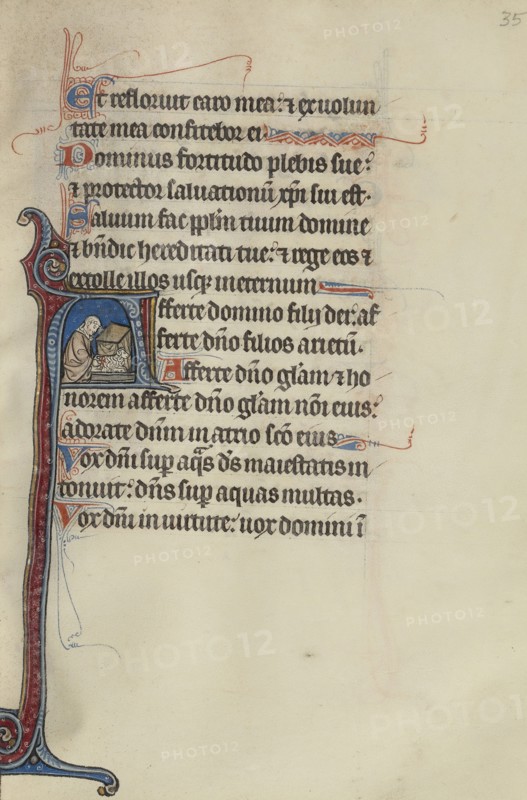 35
Et refloruit caro mea: ⁊ ex uolun
tate mea confitebor ei
Dominus fortitudo plebis sue:
⁊ protector saluationū xp̄i sui est.
Saluum fac pp̄lm tuum domine
⁊ bn̄dic hereditati tue: ⁊ rege eos ⁊
extolle illos usq; in eternum
Afferte domino filij dei: af
ferte dn̄o filios arietū.
Afferte dn̄o gl̄am ⁊ ho
norem afferte dn̄o gl̄am nōi eius:
adorate dn̄m in atrio sc̄o eius
Vox dn̄i sup aq̄s ds̄ maiestatis in
tonuit: dn̄s sup aquas multas.
Vox dn̄i in uirtute: uox domini ī
PHOTO12